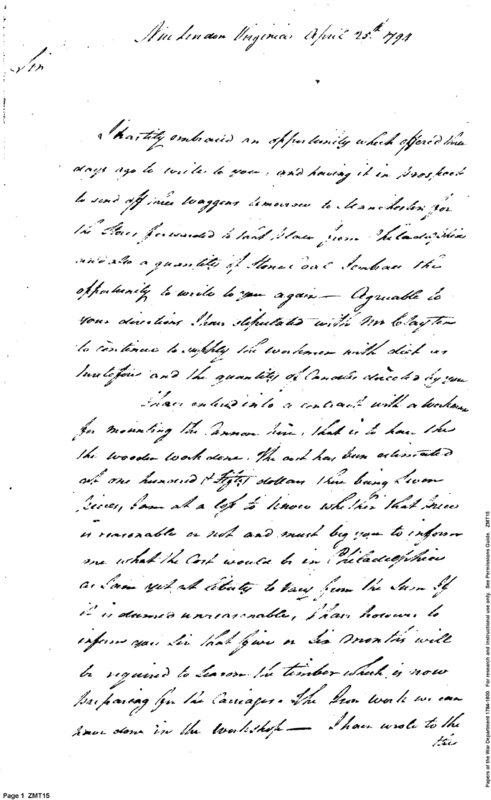 New London Virginia April 25th 1794
Sir
I hastily embraced an opportunity which offered three
days ago to write to you, and having it in prospect
to send off three waggons tomorrow to Manchester for
the Stores forwarded to that place from Philadelphia
and also a quantity of Stone Coal I embrace the
opportunity to write to you again — Agreable to
your directions I have stipulated with Mr Clayton
to continue to supply the workmen with diet as
heretofore and the quantity of Candles directed by you
I have entered into a contract with a Workman
for mounting the Cannon here, that is to have the
the wooden work done. The cost has been estimated
at one hundred & fifty dollars there being
pieces, I am at a loss to know whether that price
is reasonable or not and must beg you to inform
me what the Cost would be in Philadelphia
as I am yet at liberty to vary from the Sum If
it is deemed unreasonable, I have however to
inform you Sir that five or six months will
be required to season the timber which is now
preparing for the Carriages. The Iron work we can
have done in the Workshop — I have wrote to the
the
Page 1 ZMT15
Papers of the War Department 1784-1800. For research and instructional use only. See Permissions Guide. ZMT15